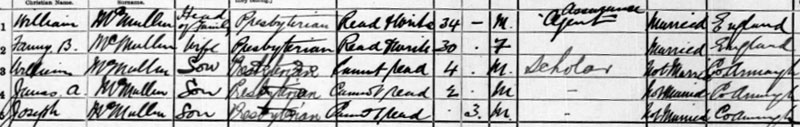 Christian Name. Surname.
1 William McMullen Head of Family Presbyterian Read & Write 34 - M. Assurance Agent Married England
2 Fanny B. McMullen Wife Presbyterian Read & Write 30 . F Married England
3 William McMullen Son Presbyterian Cannot read 4 . M. Scholar Not Married Co Armagh
4 James A. McMullen Son Presbyterian Cannot read 2 . M. - Not Married Co Armagh
5 Joseph McMullen Son Presbyterian Cannot read . 3. M. - Not Married Co Armagh